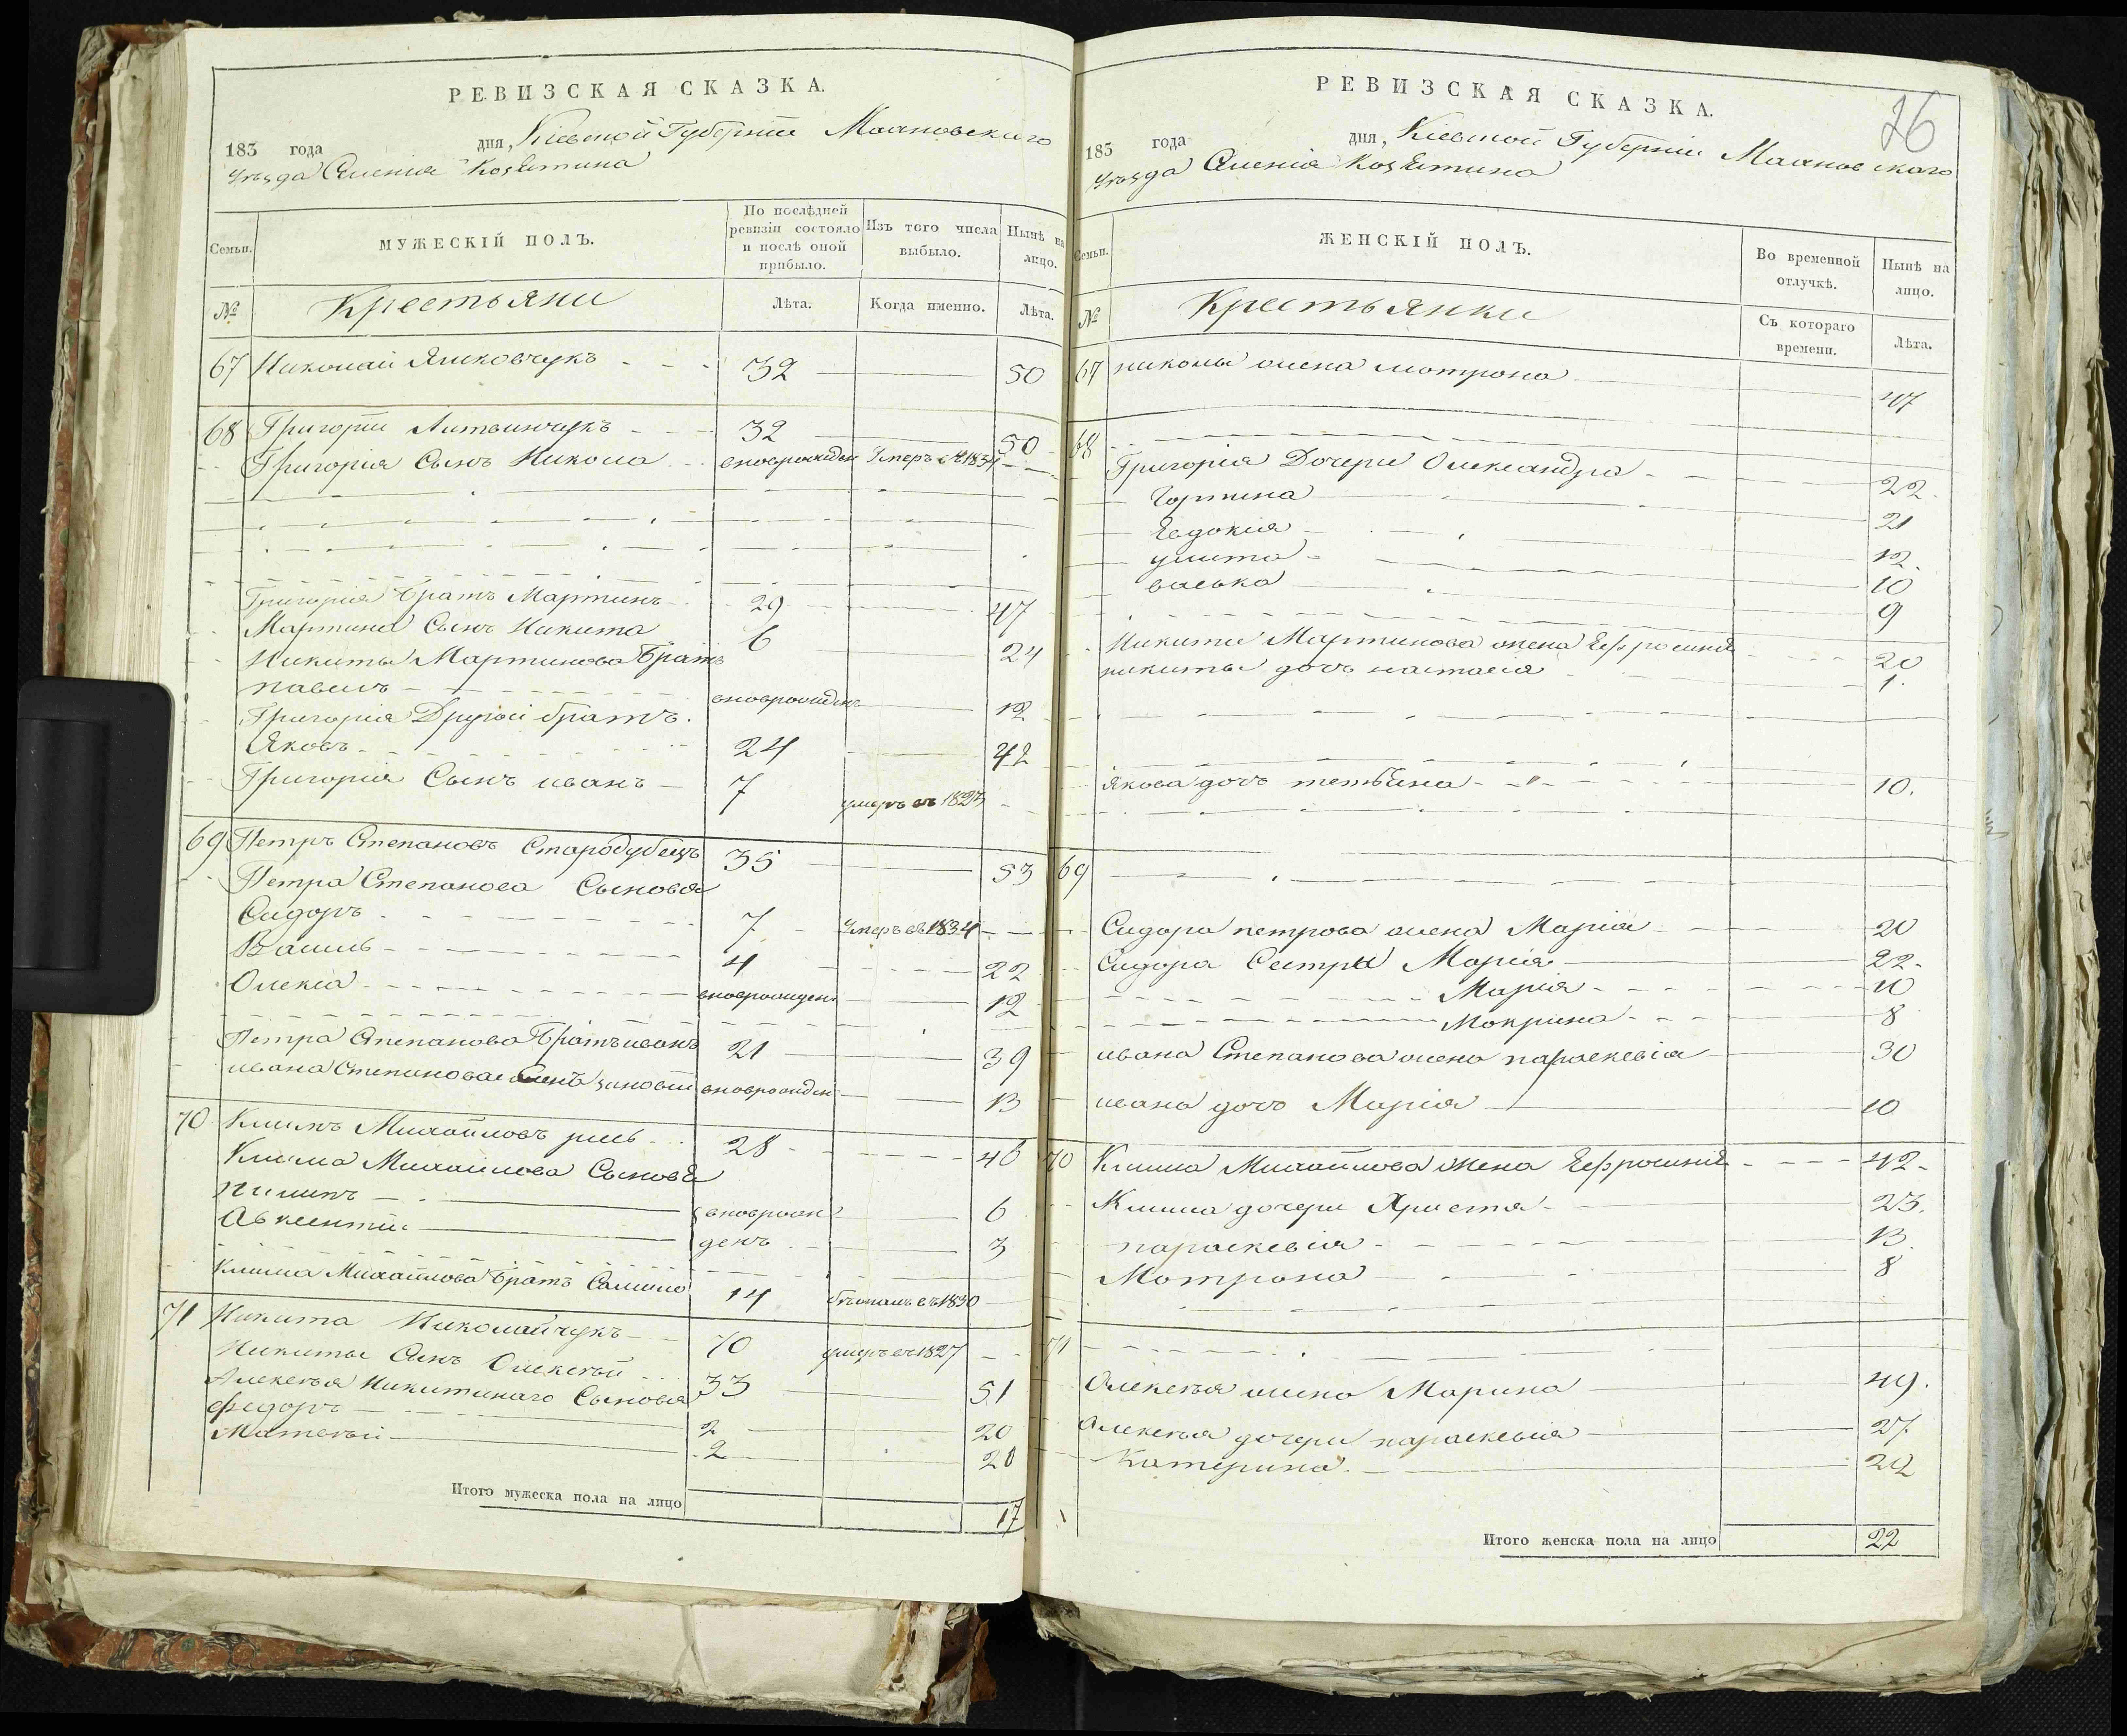 РЕВИЗСКАЯ СКАЗКА.
183 года дня, Кіевской Губерніи Махновскаго
Уѣзда Селенія Козятина
Семьи.
МУЖЕСКІЙ ПОЛЪ.
По послѣдней ревизіи состояло и послѣ оной прибыло.
Изъ того числа выбыло.
Нынѣ на лицо.
№
Крестьяни
Лѣта.
Когда именно.
Лѣта.
67 Николай Яшковчукъ 32 50
68 Григорій Литвинчукъ 32 50
Григорія Сынъ Никола вновьрожден Умеръ въ 1834
Григорія братъ Мартинъ 29 47
Мартина Сынъ Никита 6 24
Никиты Мартинова братъ
павелъ вновьрожденъ 12
Григорія Другой братъ.
Яковъ 24 42
Григорія Сынъ иванъ 7 умеръ въ 1823
69 Петръ Степановъ Стародубецъ 35 53
Петра Степанова Сыновя
Сидоръ 7 Умеръ въ 1834
Василь 4 22
Олекса вновьрожден 12
Петра Степанова Братъ иванъ 21 39
ивана Степанова Сынъ зиновій вновьрожден 13
70 Климъ Михайловъ 28 46
Клима Михайлова Сыновя
пилипъ вновьрож 6
Авксентій денъ 3
Клима Михайлова братъ 14 въ 1830
71 Никита Николайчукъ 70 умеръ въ 1827
Никиты Сынъ Олексѣй 33 51
Алексѣя Никитинаго Сыновя
федоръ 2 20
Матвѣй 2 20
Итого мужеска пола на лицо 17
РЕВИЗСКАЯ СКАЗКА.
26
183 года дня, Кіевской Губерніи Махновскаго
Уѣзда Селенія Козятина
Семьи.
ЖЕНСКІЙ ПОЛЪ.
Во временной отлучкѣ.
Нынѣ на лицо.
№
Крестьянки
Съ котораго времени.
Лѣта.
67 николы жена мотрона 47
68
Григорія Дочери Олександра 22
Горпина 21
Явдокія 12
улита 10
васька 9
Никиты Мартинова жена Ефросинія 20
никиты дочъ настасія 1
Якова дочъ 10.
69
Сидора петрова жена Марія 20
Сидора Сестры Марія 22
Марія 10
Мокрина 8
ивана Степанова жена параскевія 30
ивана дочъ Марія 10
70 Клима Михайлова Жена Ефросинія 42
Клима дочери Христя 23.
параскевія 13
Мотрона 8
71
Олексѣя жена Марина 49.
Алексѣя дочери параскевія 27
Катерина 22
Итого женска пола на лицо 22